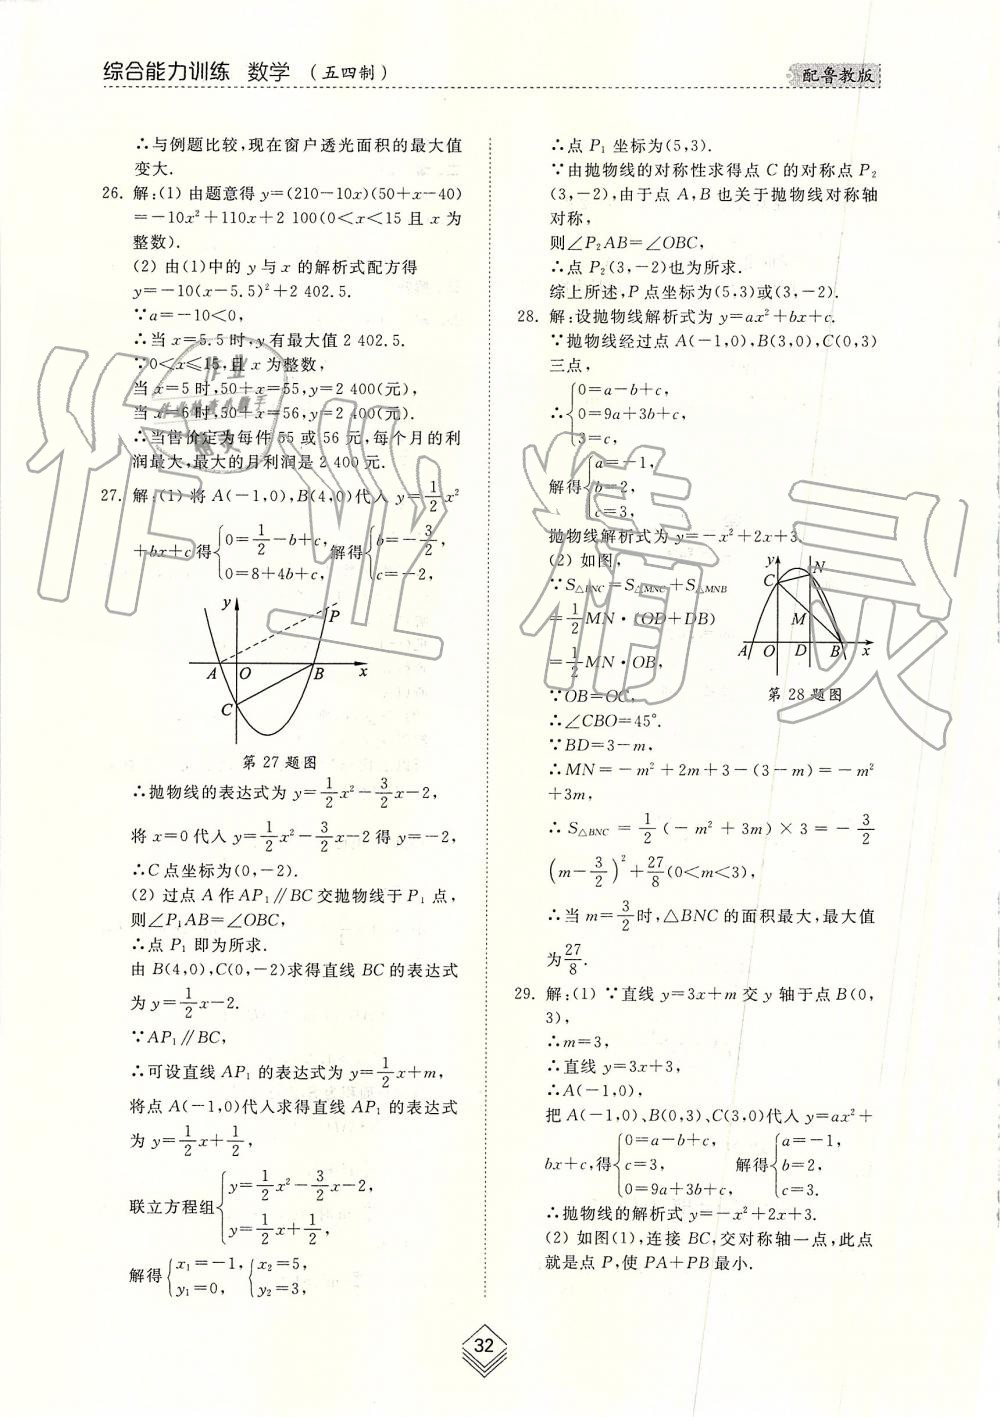 综合能力训练 数学 (五四制)
配鲁教版
∴与例题比较,现在窗户透光面积的最大值
变大.
26. 解:(1) 由题意得 y=(210-10x)(50+x-40)
=-10x²+110x+2 100(0<x<15 且 x 为
整数).
(2) 由(1)中的 y 与 x 的解析式配方得
y=-10(x-5.5)²+2 402.5.
∵a=-10<0,
∴当 x=5.5 时,y 有最大值 2 402.5.
∵0<x≤15,且 x 为整数,
当 x=5 时,50+x=55,y=2 400(元),
当 x=6 时,50+x=56,y=2 400(元),
∴当售价定为每件 55 或 56 元,每个月的利
润最大,最大的月利润是 2 400 元.
27. 解:(1) 将 A(-1,0),B(4,0)代入 y=1/2 x²
+bx+c 得{0=1/2-b+c, 0=8+4b+c, 解得{b=-3/2, c=-2,
y
P
A O B x
C
第 27 题图
∴抛物线的表达式为 y=1/2 x²-3/2 x-2,
将 x=0 代入 y=1/2 x²-3/2 x-2 得 y=-2,
∴C 点坐标为(0,-2).
(2) 过点 A 作 AP₁∥BC 交抛物线于 P₁ 点,
则∠P₁AB=∠OBC,
∴点 P₁ 即为所求.
由 B(4,0),C(0,-2)求得直线 BC 的表达式
为 y=1/2 x-2.
∵AP₁∥BC,
∴可设直线 AP₁ 的表达式为 y=1/2 x+m,
将点 A(-1,0)代入求得直线 AP₁ 的表达式
为 y=1/2 x+1/2,
联立方程组{y=1/2 x²-3/2 x-2, y=1/2 x+1/2,
解得{x₁=-1, y₁=0, {x₂=5, y₂=3,
∴点 P₁ 坐标为(5,3).
∵由抛物线的对称性求得点 C 的对称点 P₂
(3,-2),由于点 A,B 也关于抛物线对称轴
对称,
则∠P₂AB=∠OBC,
∴点 P₂(3,-2)也为所求.
综上所述,P 点坐标为(5,3)或(3,-2).
28. 解:设抛物线解析式为 y=ax²+bx+c.
∵抛物线经过点 A(-1,0),B(3,0),C(0,3)
三点,
∴{0=a-b+c, 0=9a+3b+c, 3=c,
解得{a=-1, b=2, c=3,
抛物线解析式为 y=-x²+2x+3.
(2) 如图,
∵S△BNC=S△MNC+S△MNB
=1/2 MN·(OD+DB)
=1/2 MN·OB,
y
C N
M
A O D B x
第 28 题图
∵OB=OC,
∴∠CBO=45°.
∵BD=3-m,
∴MN=-m²+2m+3-(3-m)=-m²
+3m,
∴S△BNC=1/2(-m²+3m)×3=-3/2
(m-3/2)²+27/8(0<m<3),
∴当 m=3/2 时,△BNC 的面积最大,最大值
为 27/8.
29. 解:(1) ∵直线 y=3x+m 交 y 轴于点 B(0,
3),
∴m=3,
∴直线 y=3x+3,
∴A(-1,0),
把 A(-1,0)、B(0,3)、C(3,0)代入 y=ax²+
bx+c,得{0=a-b+c, c=3, 0=9a+3b+c, 解得{a=-1, b=2, c=3.
∴抛物线的解析式 y=-x²+2x+3.
(2) 如图(1),连接 BC,交对称轴一点,此点
就是点 P,使 PA+PB 最小.
32
作业精灵